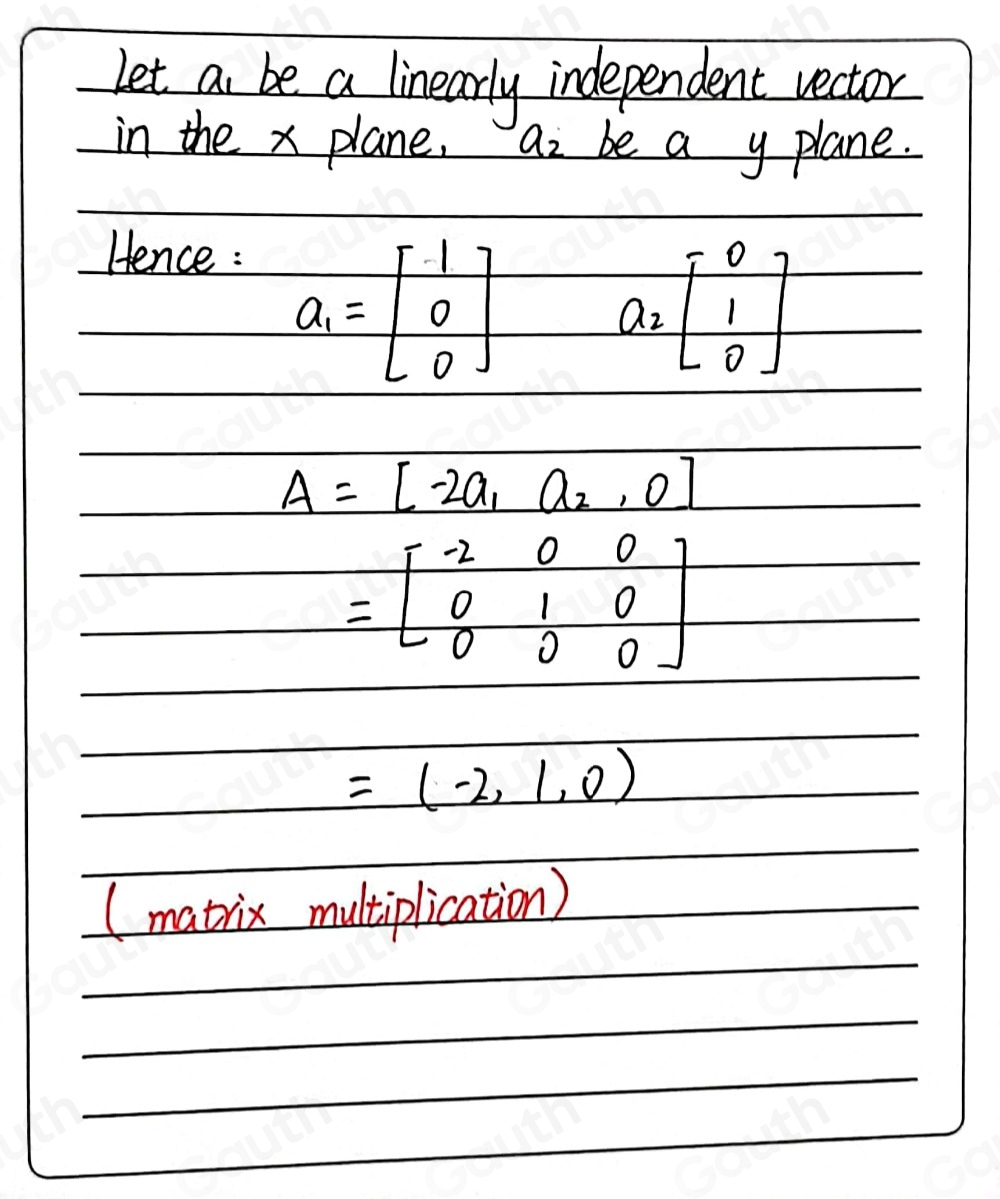 Let a₁ be a linearly independent vector
in the x plane, a₂ be a y plane.
Hence:
a₁ = [ -1 0 0 ] a₂ [ 0 1 0 ]
A = [ -2a₁ a₂ , 0 ]
= [ -2 0 0
0 1 0
0 0 0 ]
= (-2, 1, 0)
(matrix multiplication)